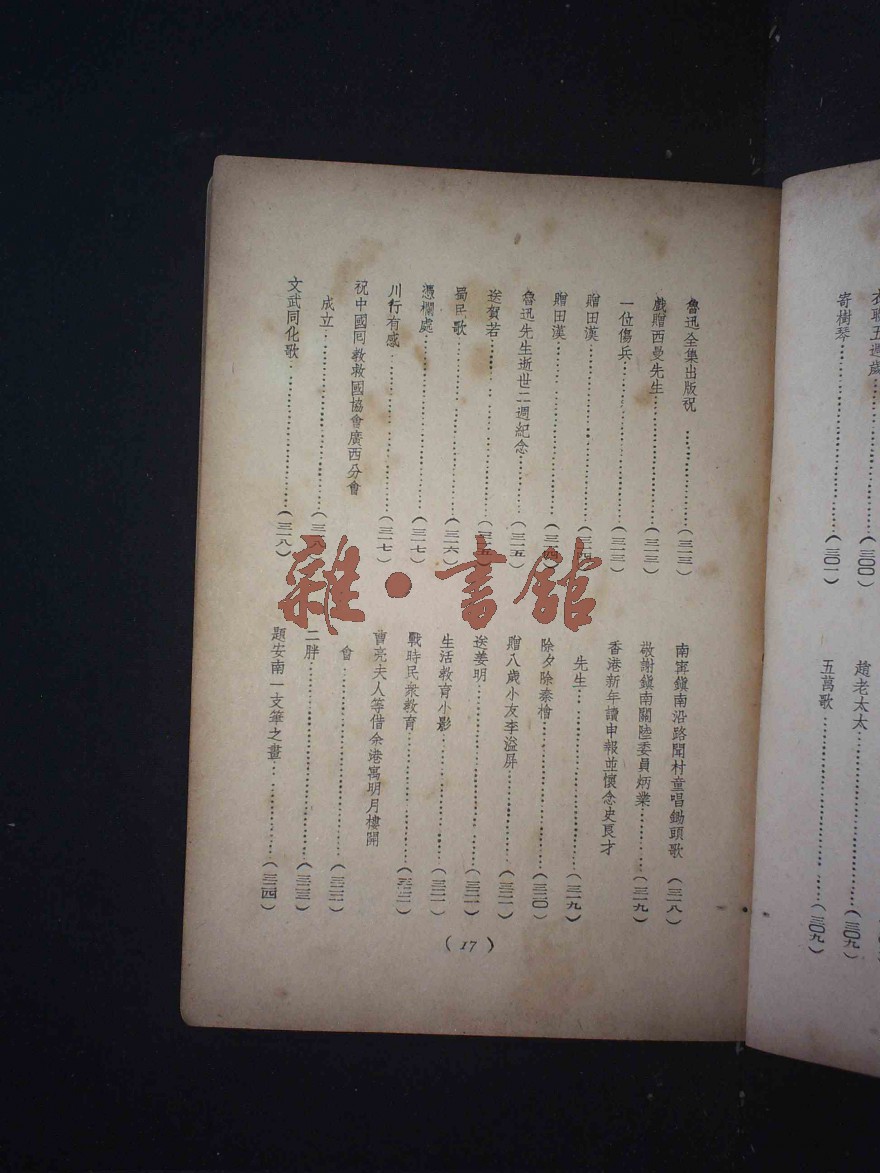 魯迅全集出版祝…………（三一三）
戲贈西曼先生…………（三一三）
一位傷兵…………（三一三）
贈田漢…………（三一四）
贈田漢…………（三一四）
魯迅先生逝世二週紀念…………（三一五）
送賀若…………（三一五）
蜀民歌…………（三一六）
憑欄處…………（三一七）
川行有感…………（三一七）
祝中國回教救國協會廣西分會
成立…………（三一八）
文武同化歌…………（三一八）
南甯鎮南沿路聞村童唱鋤頭歌（三一八）
敬謝鎮南關陸委員炳業…………（三一九）
香港新年讀申報並懷念史良才
先生…………（三一九）
除夕除秦檜…………（三二〇）
贈八歲小友李溢屏…………（三二一）
送姜明…………（三二一）
生活教育小影…………（三二一）
戰時民衆教育…………（三二二）
曹亮夫人等借余港寓明月樓開
會…………（三二二）
二胖…………（三二三）
題安南一支筆之畫…………（三二四）
（17）
衣聯五週歲…………（三〇〇）
寄樹琴…………（三〇一）
趙老太太…………（三〇九）
五萬歌…………（三〇九）
雜·書館